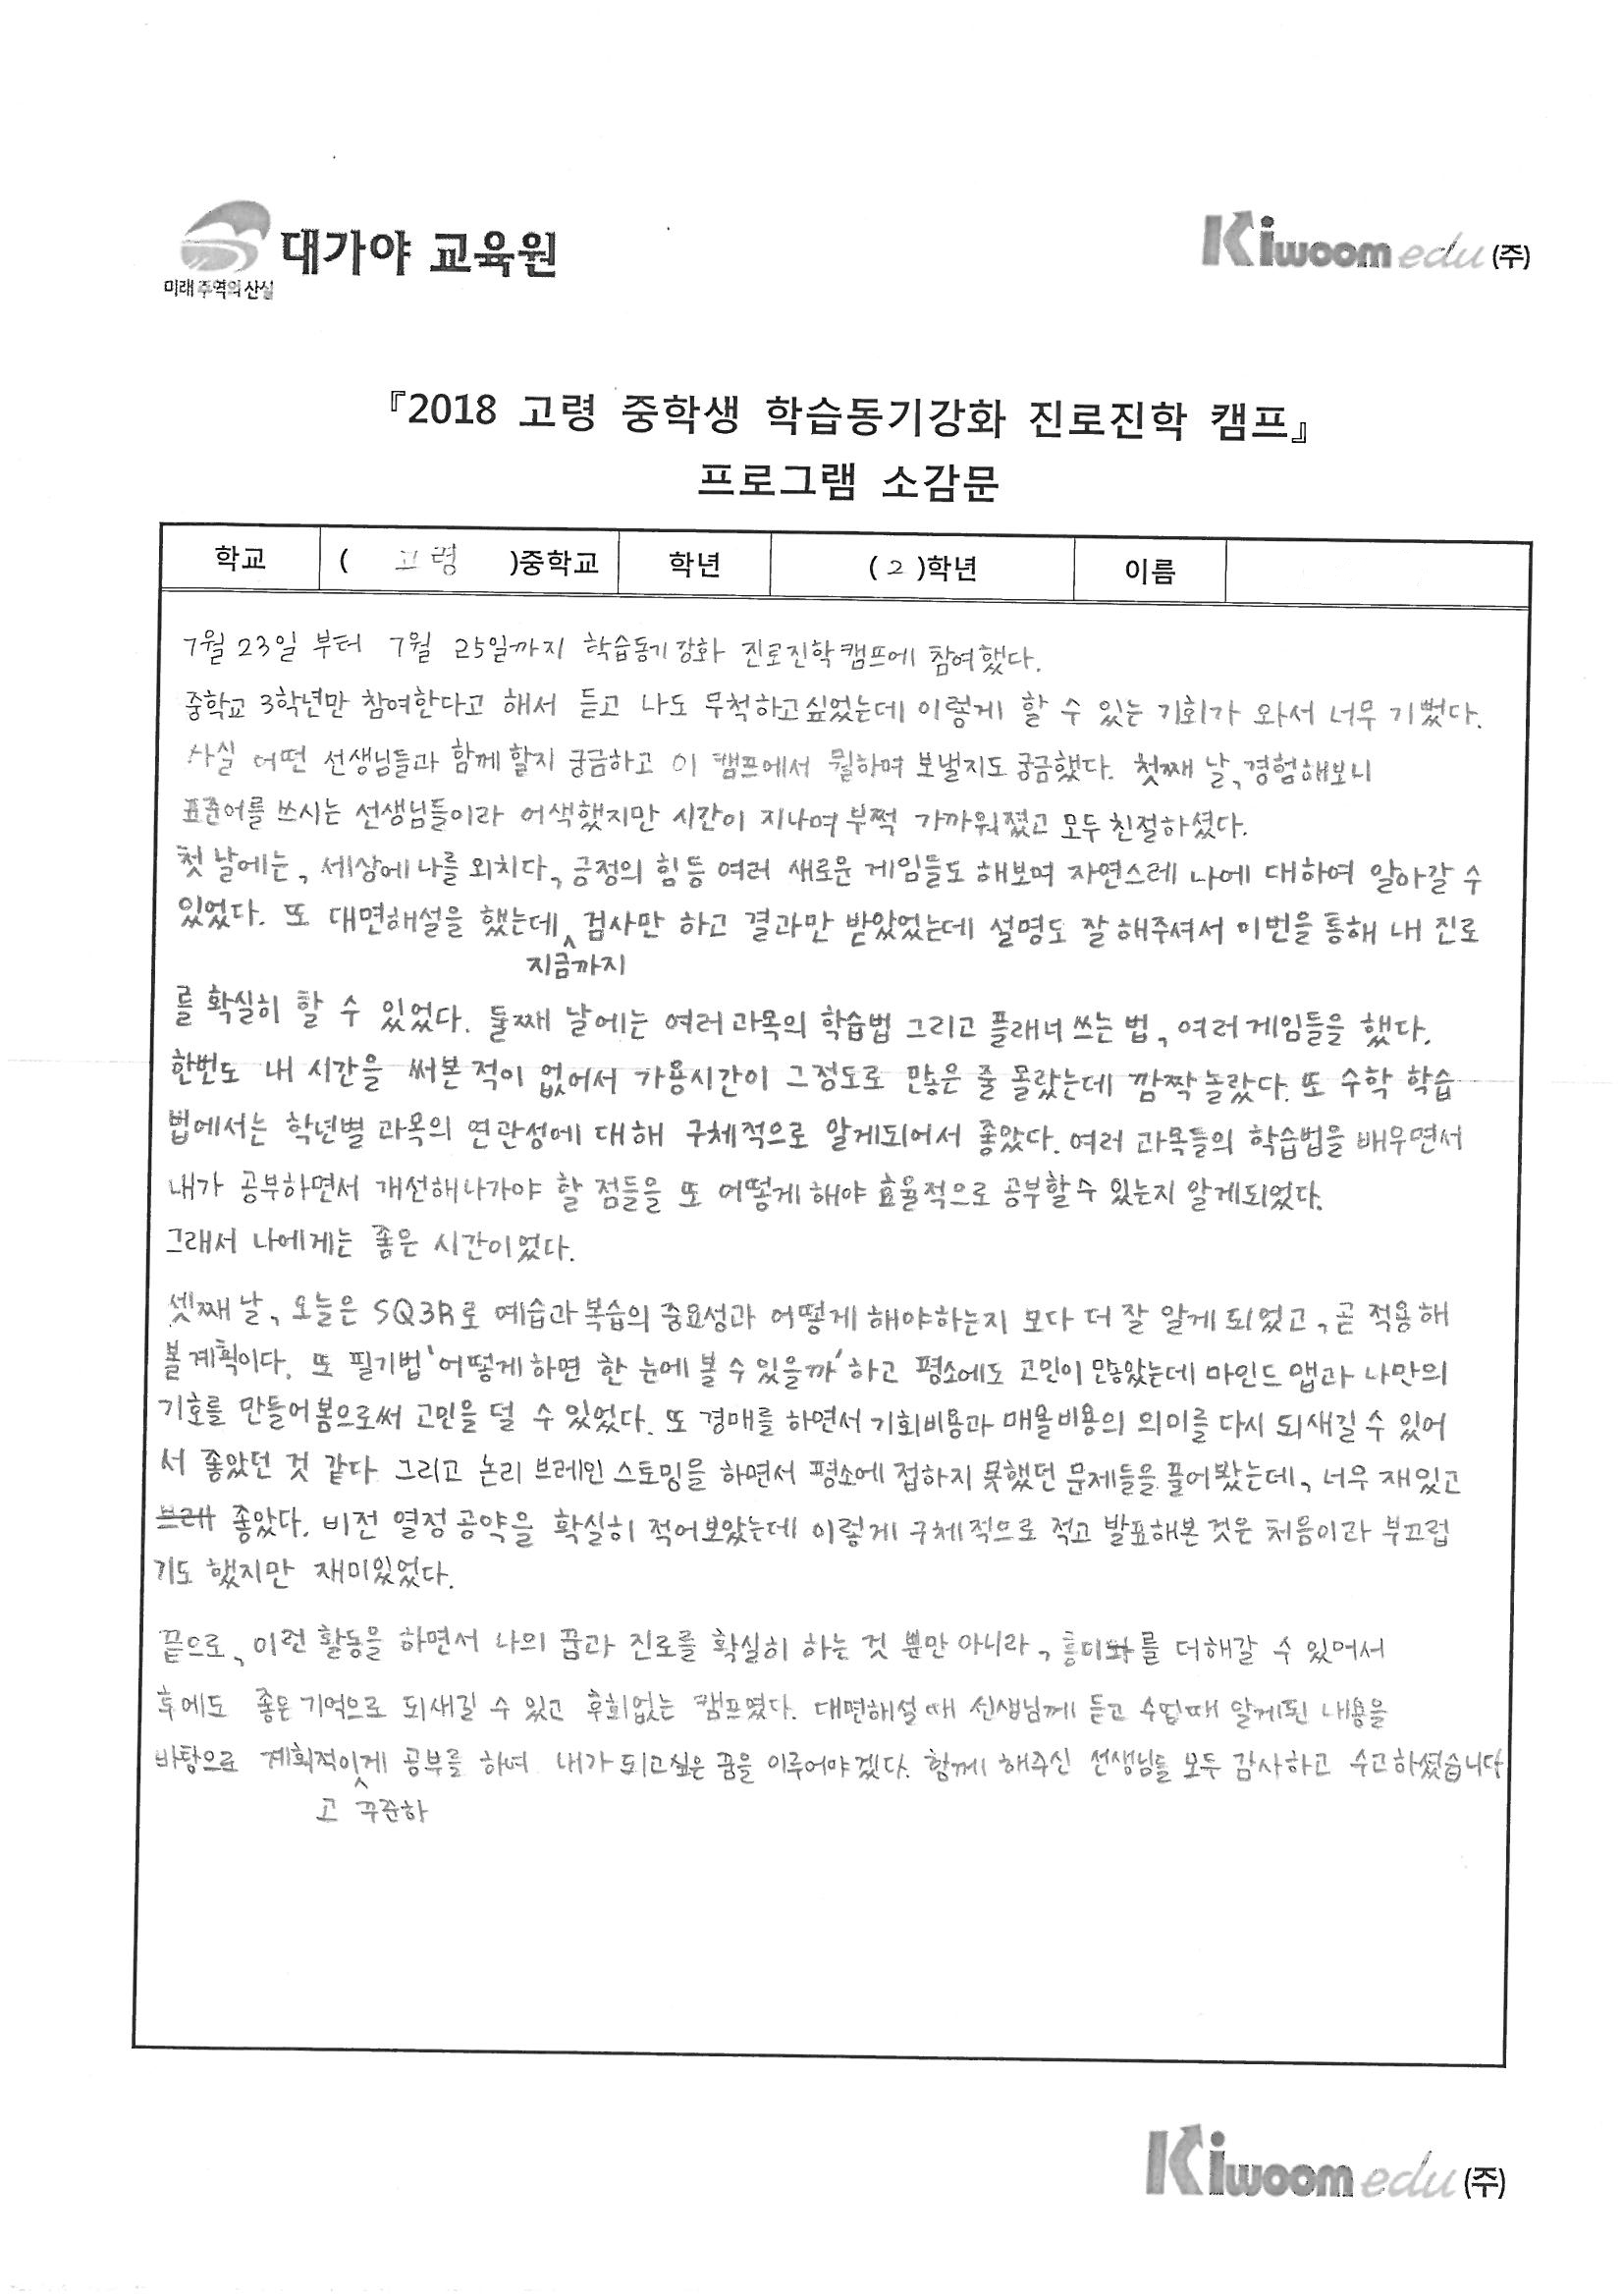 대가야 교육원
미래 주역의 산실
Kiwoom edu (주)
『2018 고령 중학생 학습동기강화 진로진학 캠프』
프로그램 소감문
학교 ( 고령 )중학교 학년 ( 2 )학년 이름
7월 23일 부터 7월 25일까지 학습동기강화 진로진학캠프에 참여했다.
중학교 3학년만 참여한다고 해서 듣고 나도 무척하고싶었는데 이렇게 할 수 있는 기회가 와서 너무 기뻤다.
사실 어떤 선생님들과 함께 할지 궁금하고 이 캠프에서 뭘하며 보낼지도 궁금했다. 첫째 날, 경험해보니
표준어를 쓰시는 선생님들이라 어색했지만 시간이 지나며 부쩍 가까워졌고 모두 친절하셨다.
첫 날에는, 세상에 나를 외치다, 긍정의 힘 등 여러 새로운 게임들도 해보며 자연스레 나에 대하여 알아갈 수
있었다. 또 대면해설을 했는데, 검사만 하고 결과만 받았었는데 설명도 잘 해주셔서 이번을 통해 내 진로
지금까지
를 확실히 할 수 있었다. 둘째 날에는 여러 과목의 학습법 그리고 플래너 쓰는 법, 여러 게임들을 했다.
한번도 내 시간을 써본 적이 없어서 가용시간이 그정도로 많은 줄 몰랐는데 깜짝 놀랐다. 또 수학 학습
법에서는 학년별 과목의 연관성에 대해 구체적으로 알게되어서 좋았다. 여러 과목들의 학습법을 배우면서
내가 공부하면서 개선해나가야 할 점들을 또 어떻게 해야 효율적으로 공부할 수 있는지 알게되었다.
그래서 나에게는 좋은 시간이었다.
셋째 날, 오늘은 SQ3R로 예습과 복습의 중요성과 어떻게 해야하는지 모다 더 잘 알게 되었고, 곧 적용해
볼 계획이다. 또 필기법 '어떻게 하면 한 눈에 볼 수 있을까' 하고 평소에도 고민이 많았는데 마인드 맵과 나만의
기호를 만들어 봄으로써 고민을 덜 수 있었다. 또 경매를 하면서 기회비용과 매몰비용의 의미를 다시 되새길 수 있어
서 좋았던 것 같다 그리고 논리 브레인 스토밍을 하면서 평소에 접하지 못했던 문제들을 풀어봤는데, 너무 재있고
브레 좋았다. 비전 열정 공약을 확실히 적어보았는데 이렇게 구체적으로 적고 발표해본 것은 처음이라 부끄럽
기도 했지만 재미있었다.
끝으로, 이런 활동을 하면서 나의 꿈과 진로를 확실히 하는 것 뿐만 아니라, 흥미와를 더해갈 수 있어서
후에도 좋은 기억으로 되새길 수 있고 후회없는 캠프였다. 대면해설 때 선생님께 듣고 수업때 알게된 내용을
바탕으로 계획적이게 공부를 하여 내가 되고싶은 꿈을 이루어야겠다. 함께 해주신 선생님들 모두 감사하고 수고하셨습니다
고 꾸준하
Kiwoom edu (주)